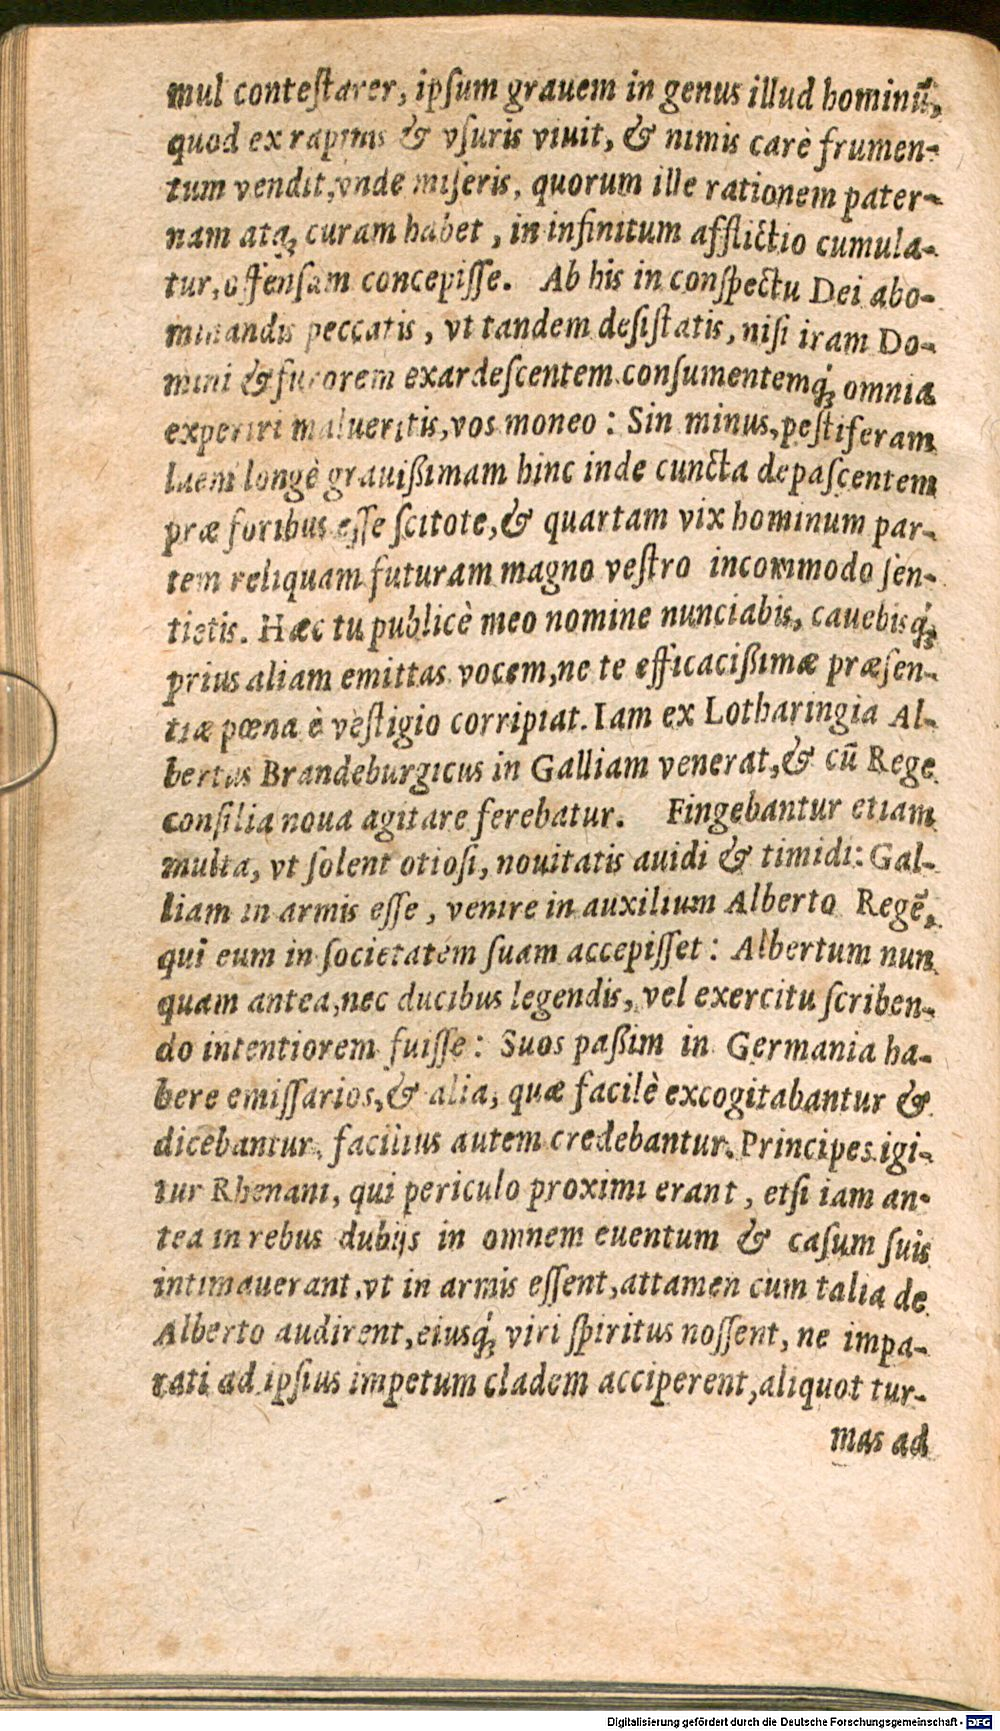 mul conteſtarer, ipſum grauem in genus illud hominū,
quod ex rapinis & vſuris viuit, & nimis carè frumen-
tum vendit, vnde miſeris, quorum ille rationem pater-
nam atq; curam habet, in infinitum afflictio cumula-
tur, offenſam concepiſſe. Ab his in conſpectu Dei abo-
minandis peccatis, vt tandem deſiſtatis, niſi iram Do-
mini & furorem exardeſcentem conſumentemq́; omnia
experiri malueritis, vos moneo: Sin minus, peſtiferam
luem longè grauißimam hinc inde cuncta depaſcentem
præ foribus eſſe ſcitote, & quartam vix hominum par-
tem reliquam futuram magno veſtro incommodo ſen-
tietis. Hæc tu publicè meo nomine nunciabis, cauebisq́;
prius aliam emittas vocem, ne te efficacißimæ præſen-
tiæ pœna è veſtigio corripiat. Iam ex Lotharingia Al-
bertus Brandeburgicus in Galliam venerat, & cū Rege
conſilia noua agitare ferebatur. Fingebantur etiam
multa, vt ſolent otioſi, nouitatis auidi & timidi: Gal-
liam in armis eſſe, venire in auxilium Alberto Regē,
qui eum in ſocietatem ſuam accepiſſet: Albertum nun
quam antea, nec ducibus legendis, vel exercitu ſcriben-
do intentiorem fuiſſe: Suos paßim in Germania ha-
bere emiſſarios, & alia, quæ facilè excogitabantur &
dicebantur, facilius autem credebantur. Principes igi-
tur Rhenani, qui periculo proximi erant, etſi iam an-
tea in rebus dubijs in omnem euentum & caſum ſuis
intimauerant, vt in armis eſſent, attamen cum talia de
Alberto audirent, eiusq́; viri ſpiritus noſſent, ne impa-
rati ad ipſius impetum cladem acciperent, aliquot tur-
mas ad
Digitalisierung gefördert durch die Deutsche Forschungsgemeinschaft - DFG